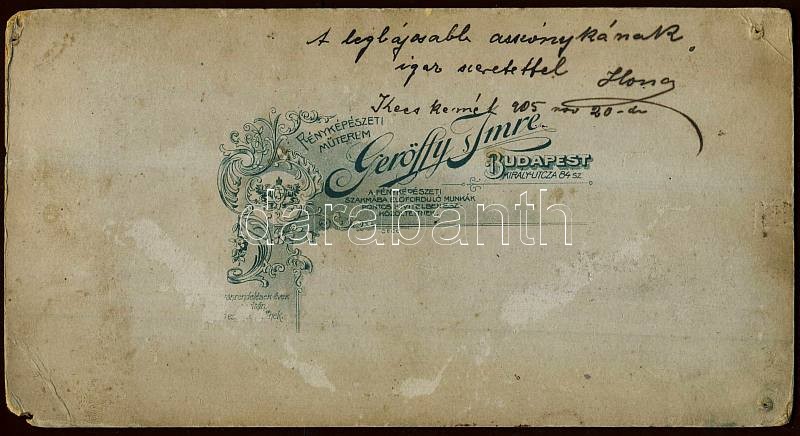 A legbájosabb asszonykának
igaz szeretettel Ilona
Kecskemét 905 nov 20-án
FÉNYKÉPÉSZETI
MŰTEREM
Gerőffy Imre
BUDAPEST
KIRÁLY-UTCZA 84 SZ.
A FÉNYKÉPÉSZETI
SZAKMÁBA ELŐFORDULÓ MUNKÁK
PONTOS KIVITELBEN
darabanth
Utánrendelések évek